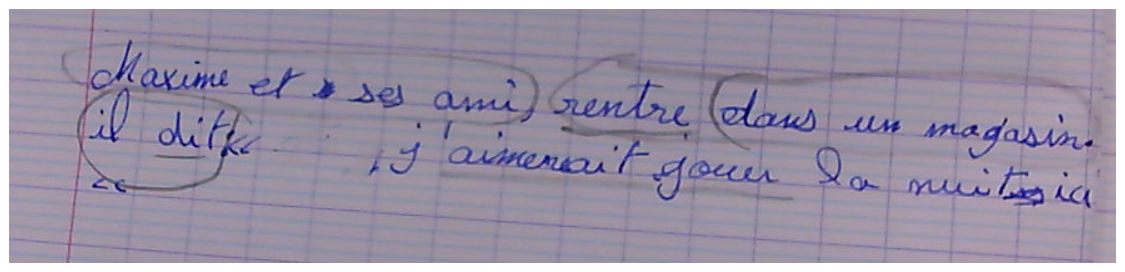 Maxime et ses ami, rentre dans un magasin.
il dit << , j'aimerait gouer la nuit ici
<<